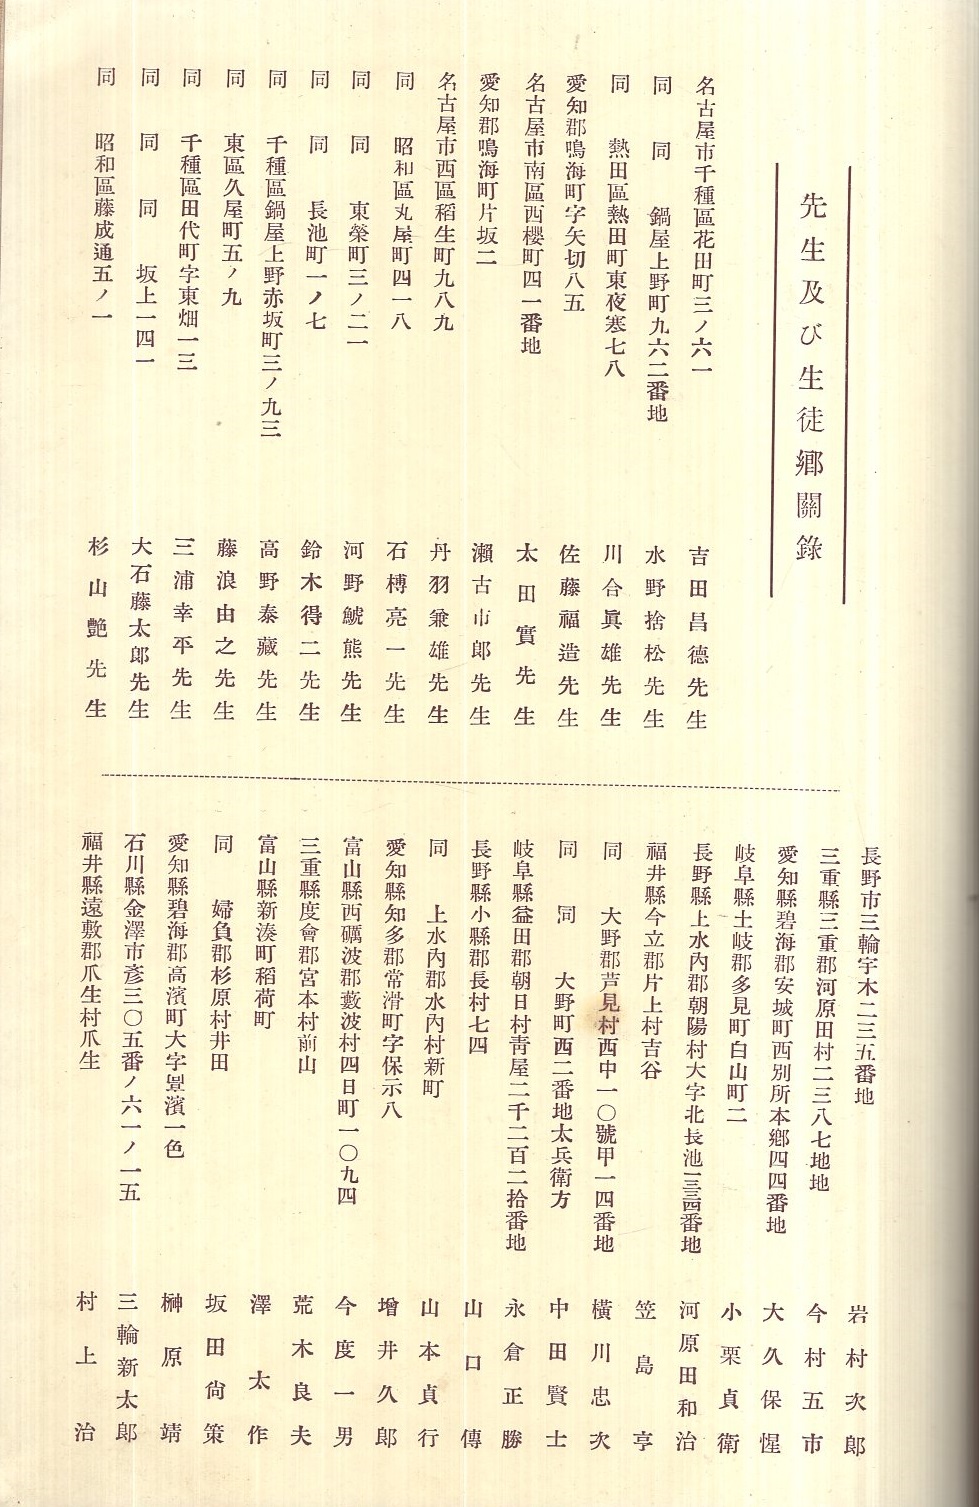 先生及び生徒鄉關錄
名古屋市千種區花田町三ノ六一 吉田昌德先生
同 同 鍋屋上野町九六二番地 水野捨松先生
同 熱田區熱田町東夜寒七八 川合眞雄先生
愛知郡鳴海町字矢切八五 佐藤福造先生
名古屋市南區西櫻町四一番地 太田實先生
愛知郡鳴海町片坂二 瀨古市郎先生
名古屋市西區稻生町九八九 丹羽兼雄先生
同 昭和區丸屋町四一八 石榑亮一先生
同 同 東榮町三ノ二一 河野鯱熊先生
同 同 長池町一ノ七 鈴木得二先生
同 千種區鍋屋上野赤坂町三ノ九三 高野泰藏先生
同 東區久屋町五ノ九 藤浪由之先生
同 千種區田代町字東畑一三 三浦幸平先生
同 同 同 坂上一四一 大石藤太郎先生
同 昭和區藤成通五ノ一 杉山艶先生
長野市三輪宇木二三五番地 岩村次郎
三重縣三重郡河原田村二三八七地地 今村五市
愛知縣碧海郡安城町西別所本鄕四四番地 大久保惺
岐阜縣土岐郡多見町白山町二 小栗貞衛
長野縣上水內郡朝陽村大字北長池一三四番地 河原田和治
福井縣今立郡片上村吉谷 笠島亨
同 大野郡芦見村西中一〇號甲一四番地 橫川忠次
同 同 大野町西二番地太兵衛方 中田賢士
岐阜縣益田郡朝日村靑屋二千二百二拾番地 永倉正勝
長野縣小縣郡長村七四 山口傳
同 上水內郡水內村新町 山本貞行
愛知縣知多郡常滑町字保示八 增井久郎
富山縣西礪波郡藪波村四日町一〇九四 今度一男
三重縣度會郡宮本村前山 荒木良夫
富山縣新湊町稻荷町 澤太作
同 婦負郡杉原村井田 坂田尙策
愛知縣碧海郡高濱町大字濱一色 榊原靖
石川縣金澤市彥三〇五番ノ六一ノ一五 三輪新太郎
福井縣遠敷郡瓜生村瓜生 村上治